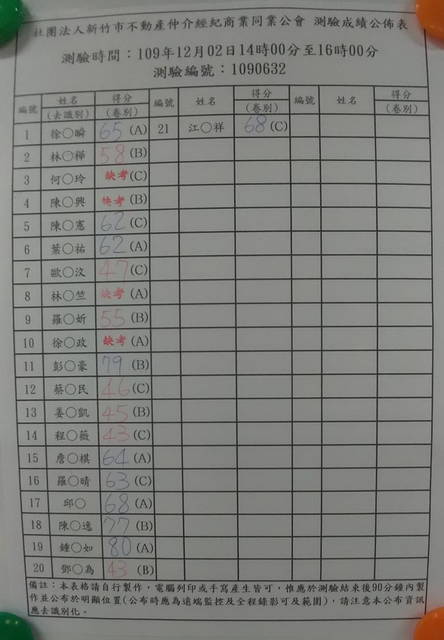 社團法人新竹市不動產仲介經紀商業同業公會 測驗成績公佈表
測驗時間：109年12月02日14時00分至16時00分
測驗編號：1090632
編號 姓名(去識別) 得分(卷別) 編號 姓名 得分(卷別) 編號 姓名 得分(卷別)
1 徐〇瞬 65 (A) 21 江〇祥 68 (C)
2 林〇樺 58 (B)
3 何〇玲 缺考 (C)
4 陳〇興 缺考 (B)
5 陳〇憲 62 (C)
6 葉〇祐 62 (A)
7 歐〇汶 47 (C)
8 林〇竺 缺考 (A)
9 羅〇妡 55 (B)
10 徐〇政 缺考 (A)
11 彭〇豪 79 (B)
12 蔡〇民 46 (C)
13 姜〇凱 45 (B)
14 程〇薇 43 (C)
15 詹〇棋 64 (A)
16 羅〇晴 63 (C)
17 邱〇 68 (A)
18 陳〇逸 77 (B)
19 鍾〇如 80 (A)
20 鄧〇為 43 (B)
備註：本表格請自行製作，電腦列印或手寫產生皆可，惟應於測驗結束後90分鐘內製
作並公布於明顯位置(公布時應為遠端監控及全程錄影可及範圍)，請注意本公布資訊
應去識別化。